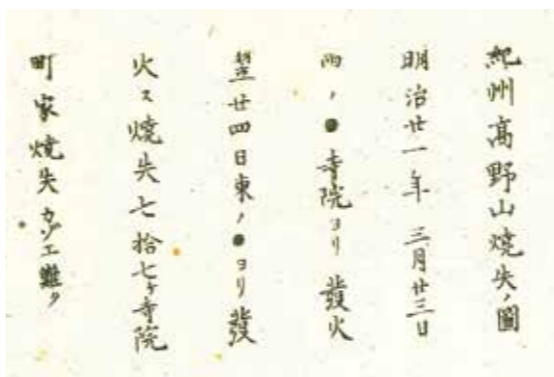 紀州高野山焼失ノ圖
明治廿一年 三月廿三日
西ノ●寺院ヨリ發火
翌廿四日東ノ●ヨリ發
火ス焼失七拾七ヶ寺院
町家焼失カゾエ難ク